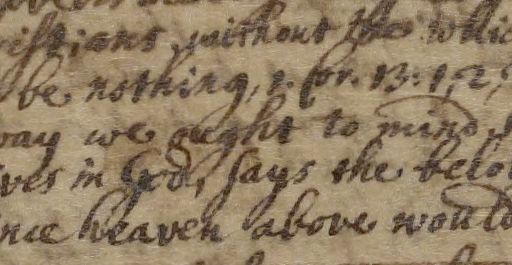 ristians, without the whic
be nothing, 1. Cor. 13: 1, 2,
way we ought to mind
ves in God, says the belo
nce heaven above would